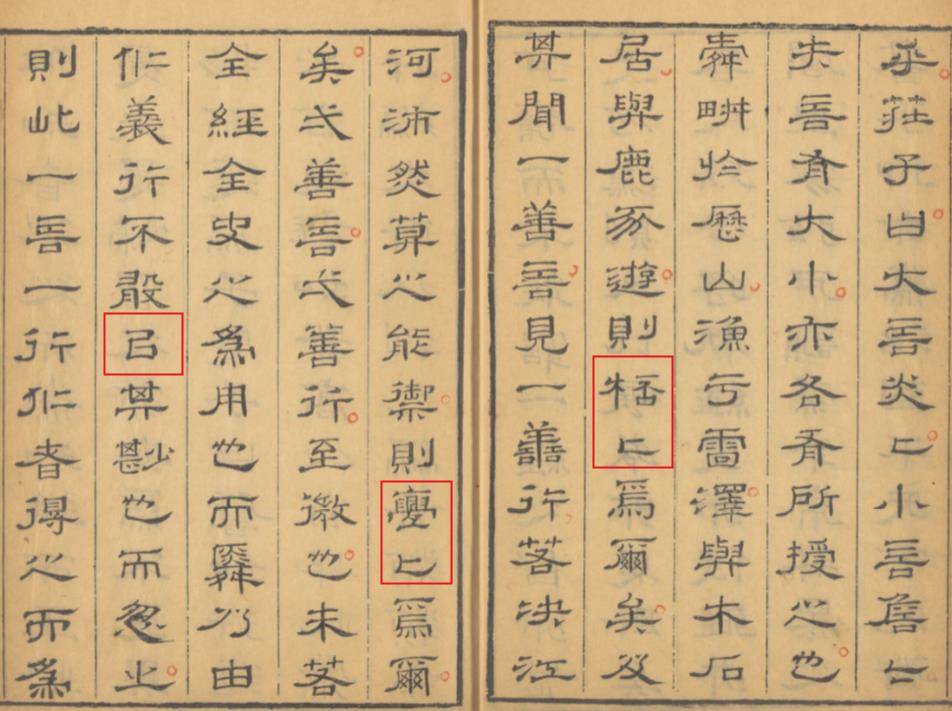 乎莊子曰大言炎〻小言詹〻
夫言有大小亦各有所授之也
舜畊於歷山漁于雷澤與木石
居與鹿豕遊則〻焉爾矣及
其聞一善言見一善行若決江
河沛然莫之能禦則夔〻焉爾
矣弌善言弌善行至微也未若
全經全史之為用也而舜乃由
仁義行不敢㠯其尠也而忽之
則此一言一行仁者得之而為